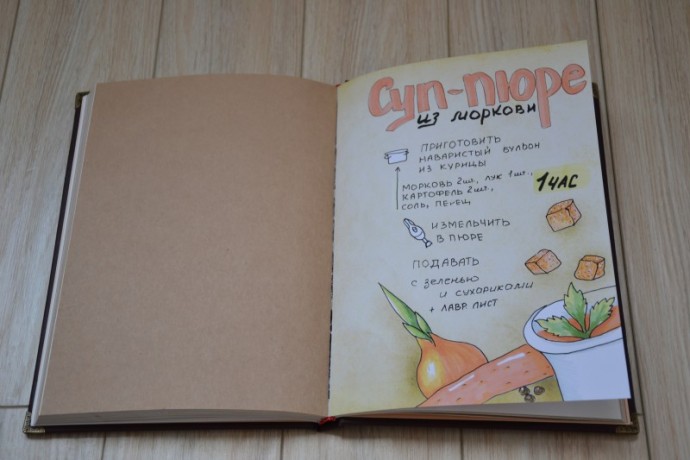 Суп-пюре
из моркови
приготовить
наваристый бульон
из курицы
морковь 2шт., лук 1шт.,
картофель 2шт.,
соль, перец
1 час
измельчить
в пюре
подавать
с зеленью
и сухариками
+ лавр. лист